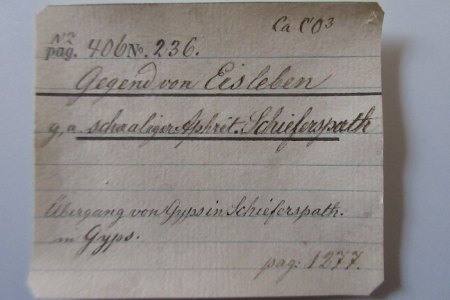 N2 Ca CO3
pag. 406 No. 236.
Gegend von Eisleben
g, a schaaliger Aphrit. Schieferspath
Übergang von Gyps in Schieferspath.
in Gyps.
pag: 1277.